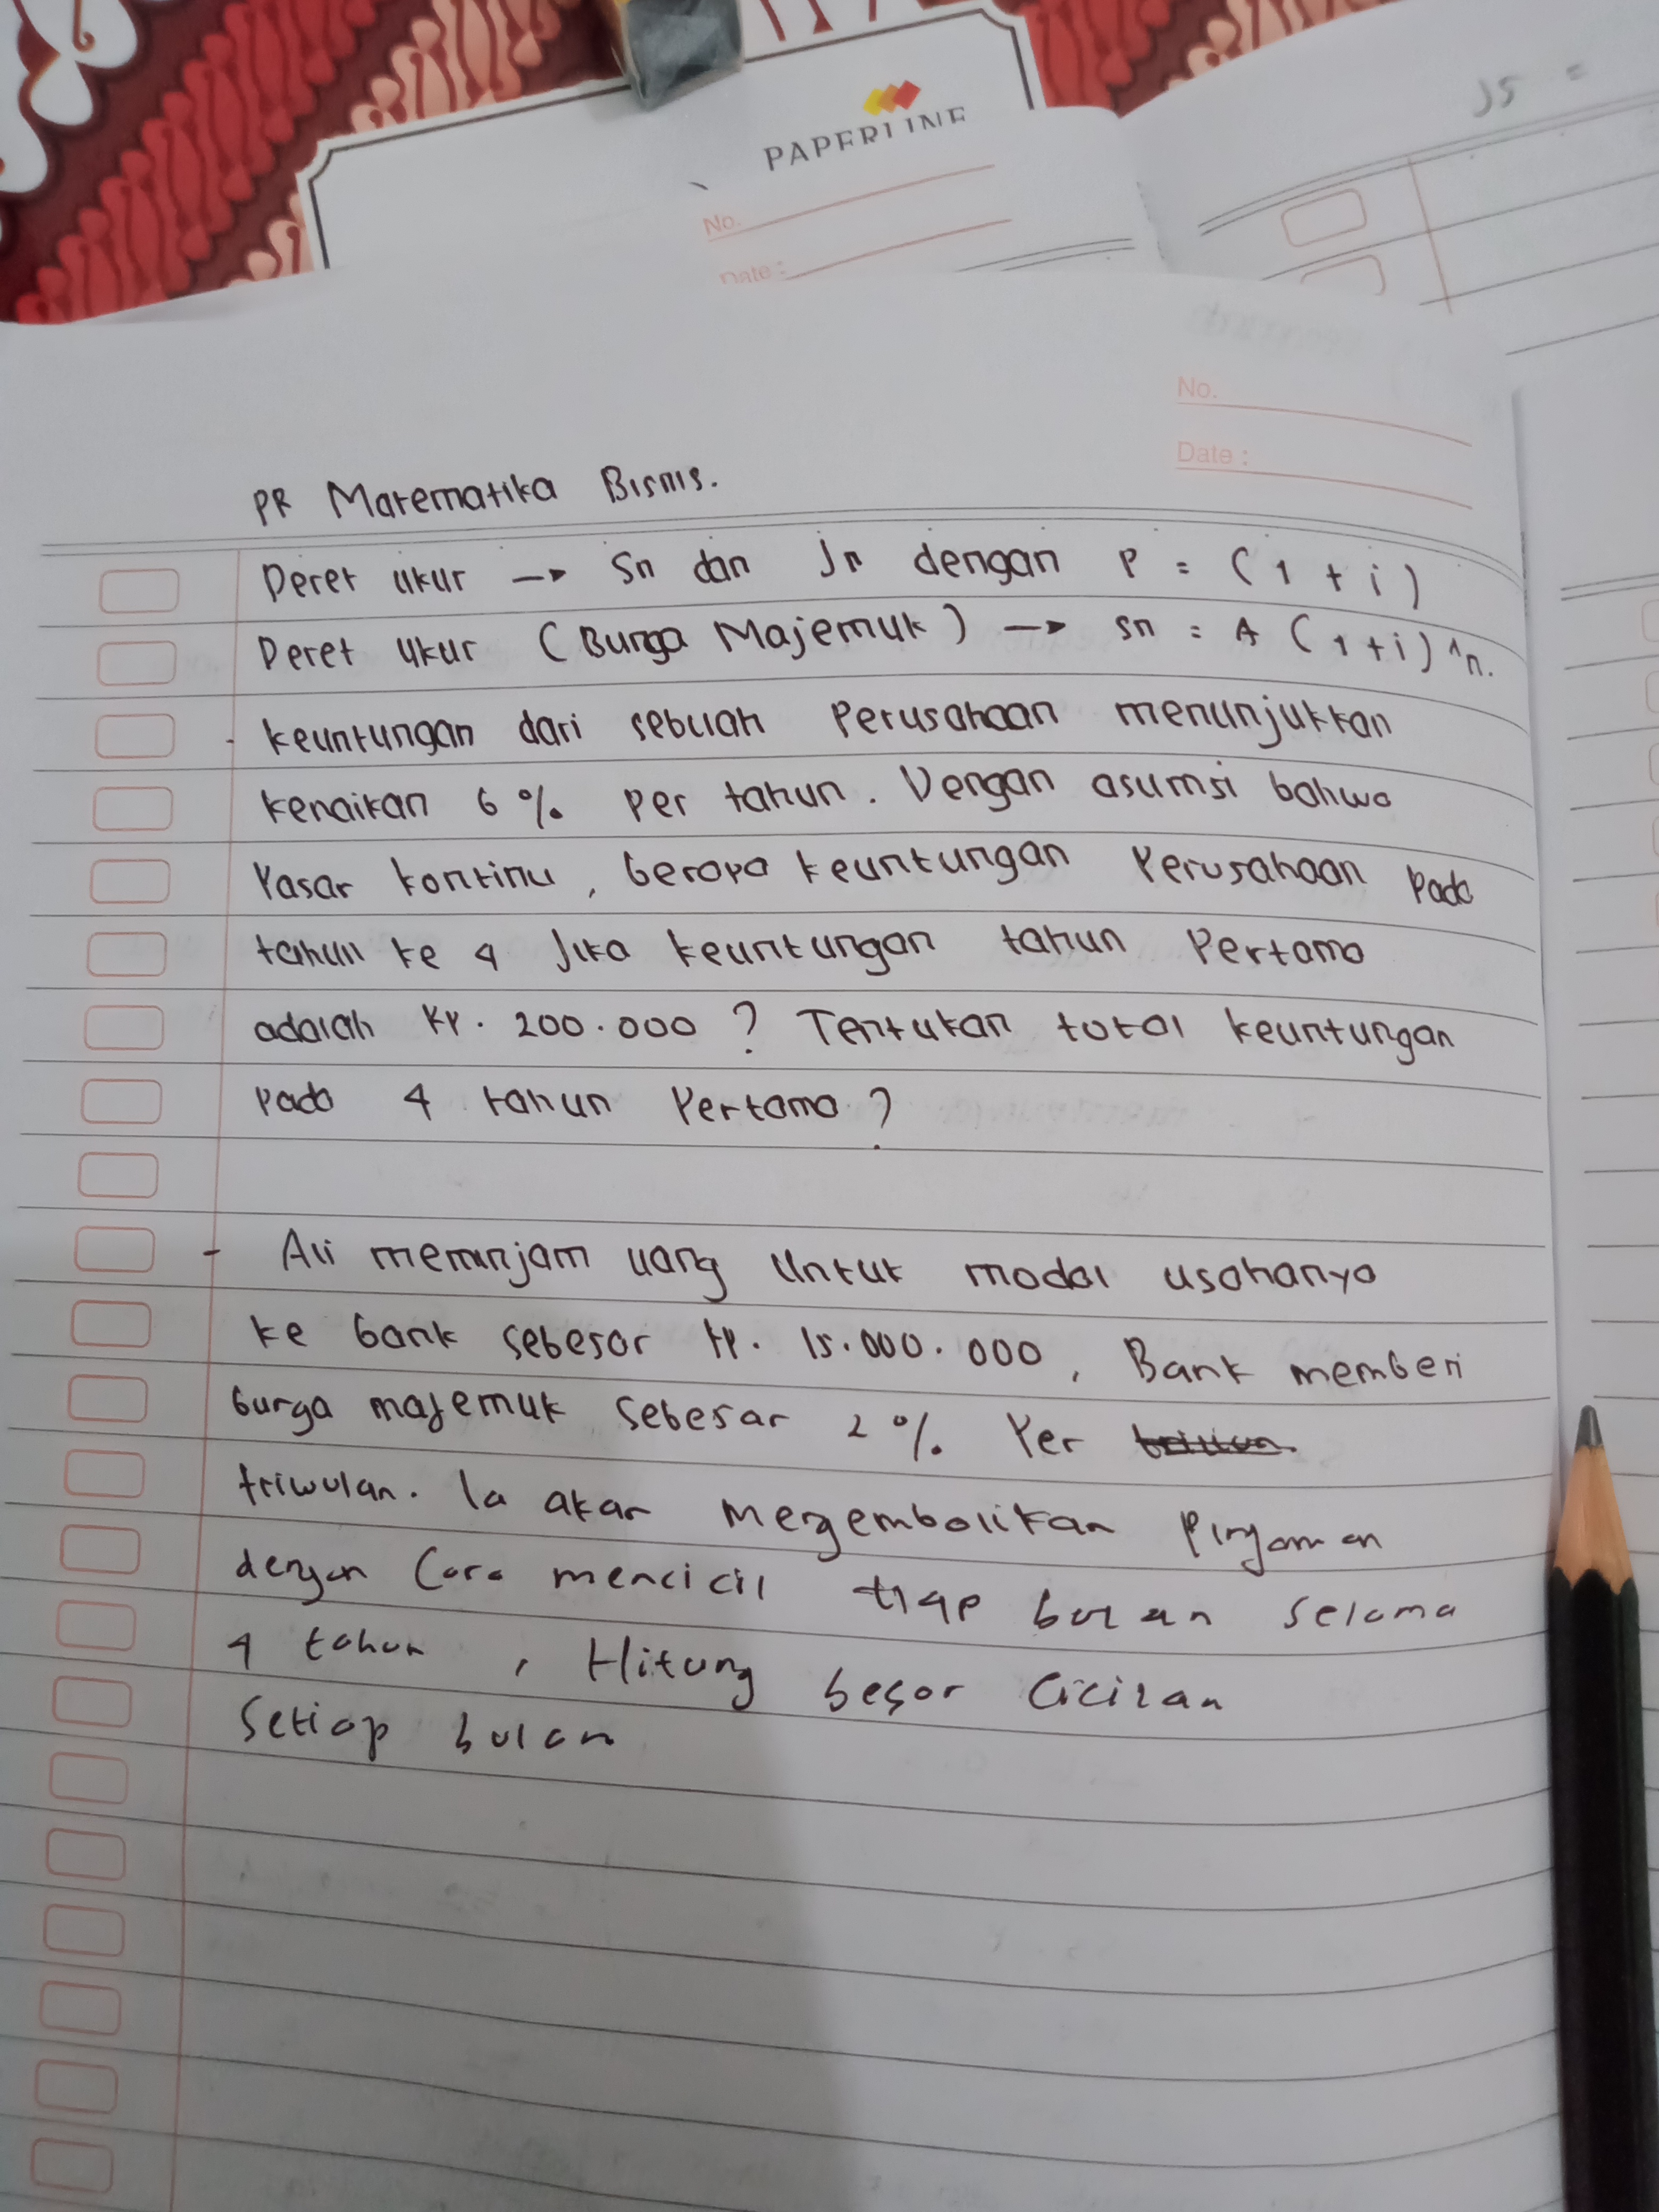 PAPERLINE
No.
Date :
J5 =
No.
Date :
PR Matematika Bisnis.
Deret ukur → Sn dan Jn dengan P = (1 + i)
Deret ukur (Bunga Majemuk) → sn = A (1+i)^n.
- keuntungan dari sebuah Perusahaan menunjukkan
kenaikan 6 % per tahun. Dengan asumsi bahwa
Pasar kontinu, berapa keuntungan Perusahaan Pada
tahun ke 4 Jika keuntungan tahun Pertama
adalah Rp. 200.000 ? Tentukan total keuntungan
Pada 4 tahun Pertama ?
- Ali meminjam uang untuk modal usahanya
ke bank sebesar Rp. 15.000.000, Bank memberi
bunga majemuk sebesar 2 % Per
triwulan. Ia akan mengembalikan Pinjaman
dengan Cara mencicil tiap bulan selama
4 tahun, Hitung besar Cicilan
Setiap bulan